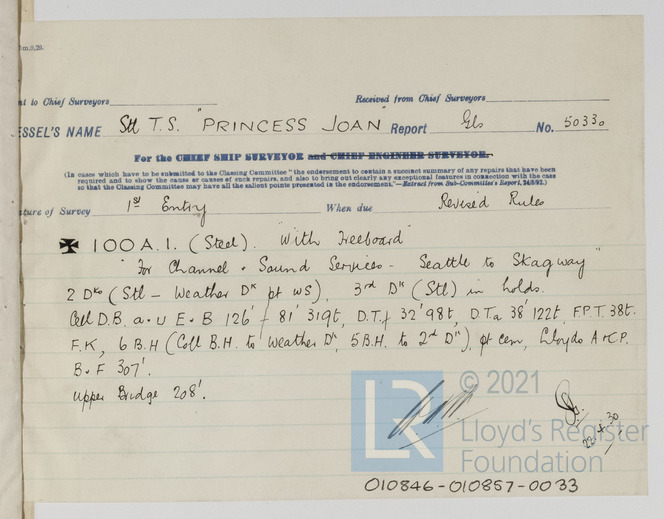 m.9,29.
nt to Chief Surveyors Received from Chief Surveyors
ESSEL'S NAME Stl T.S. "PRINCESS JOAN" Report Gls No. 50330
For the CHIEF SHIP SURVEYOR and CHIEF ENGINEER SURVEYOR.
(In cases which have to be submitted to the Classing Committee "the endorsement to contain a succinct summary of any repairs that have been
required and to show the cause or causes of such repairs, and also to bring out clearly any exceptional features in connection with the case
so that the Classing Committee may have all the salient points presented in the endorsement."—Extract from Sub-Committee's Report,
ature of Survey 1st Entry When due Revised Rules
✠ 100 A.1. (Steel). "With Freeboard"
"For Channel & Sound Services - Seattle to Skagway"
2 Dks (Stl - Weather Dk pt WS), 3rd Dk (Stl) in holds.
Cell D.B. a. u E. & B 126' f 81' 319t, D.T.f 32' 98t, D.Ta 38' 122t, F.P.T. 38t.
F.K, 6 B.H (Coll B.H. to Weather Dk, 5 B.H. to 2nd Dk), pt cem, Lloyds A & C.P.
B & F 307'.
Upper Bridge 208'.
LR © 2021
Lloyd's Register
Foundation
30
010846-010857-0033